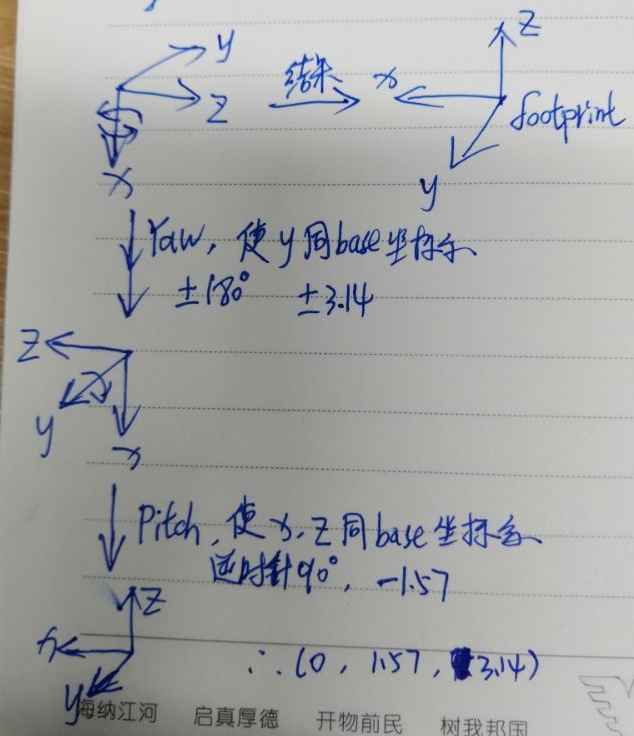 y
z
x
结果
z
x
y
footprint
Yaw, 使y同base坐标系
±180° ±3.14
z
y
x
Pitch, 使x、z同base坐标系
逆时针90°, -1.57
z
x
y
∴ (0, 1.57, 3.14)
海纳江河 启真厚德 开物前民 树我邦国